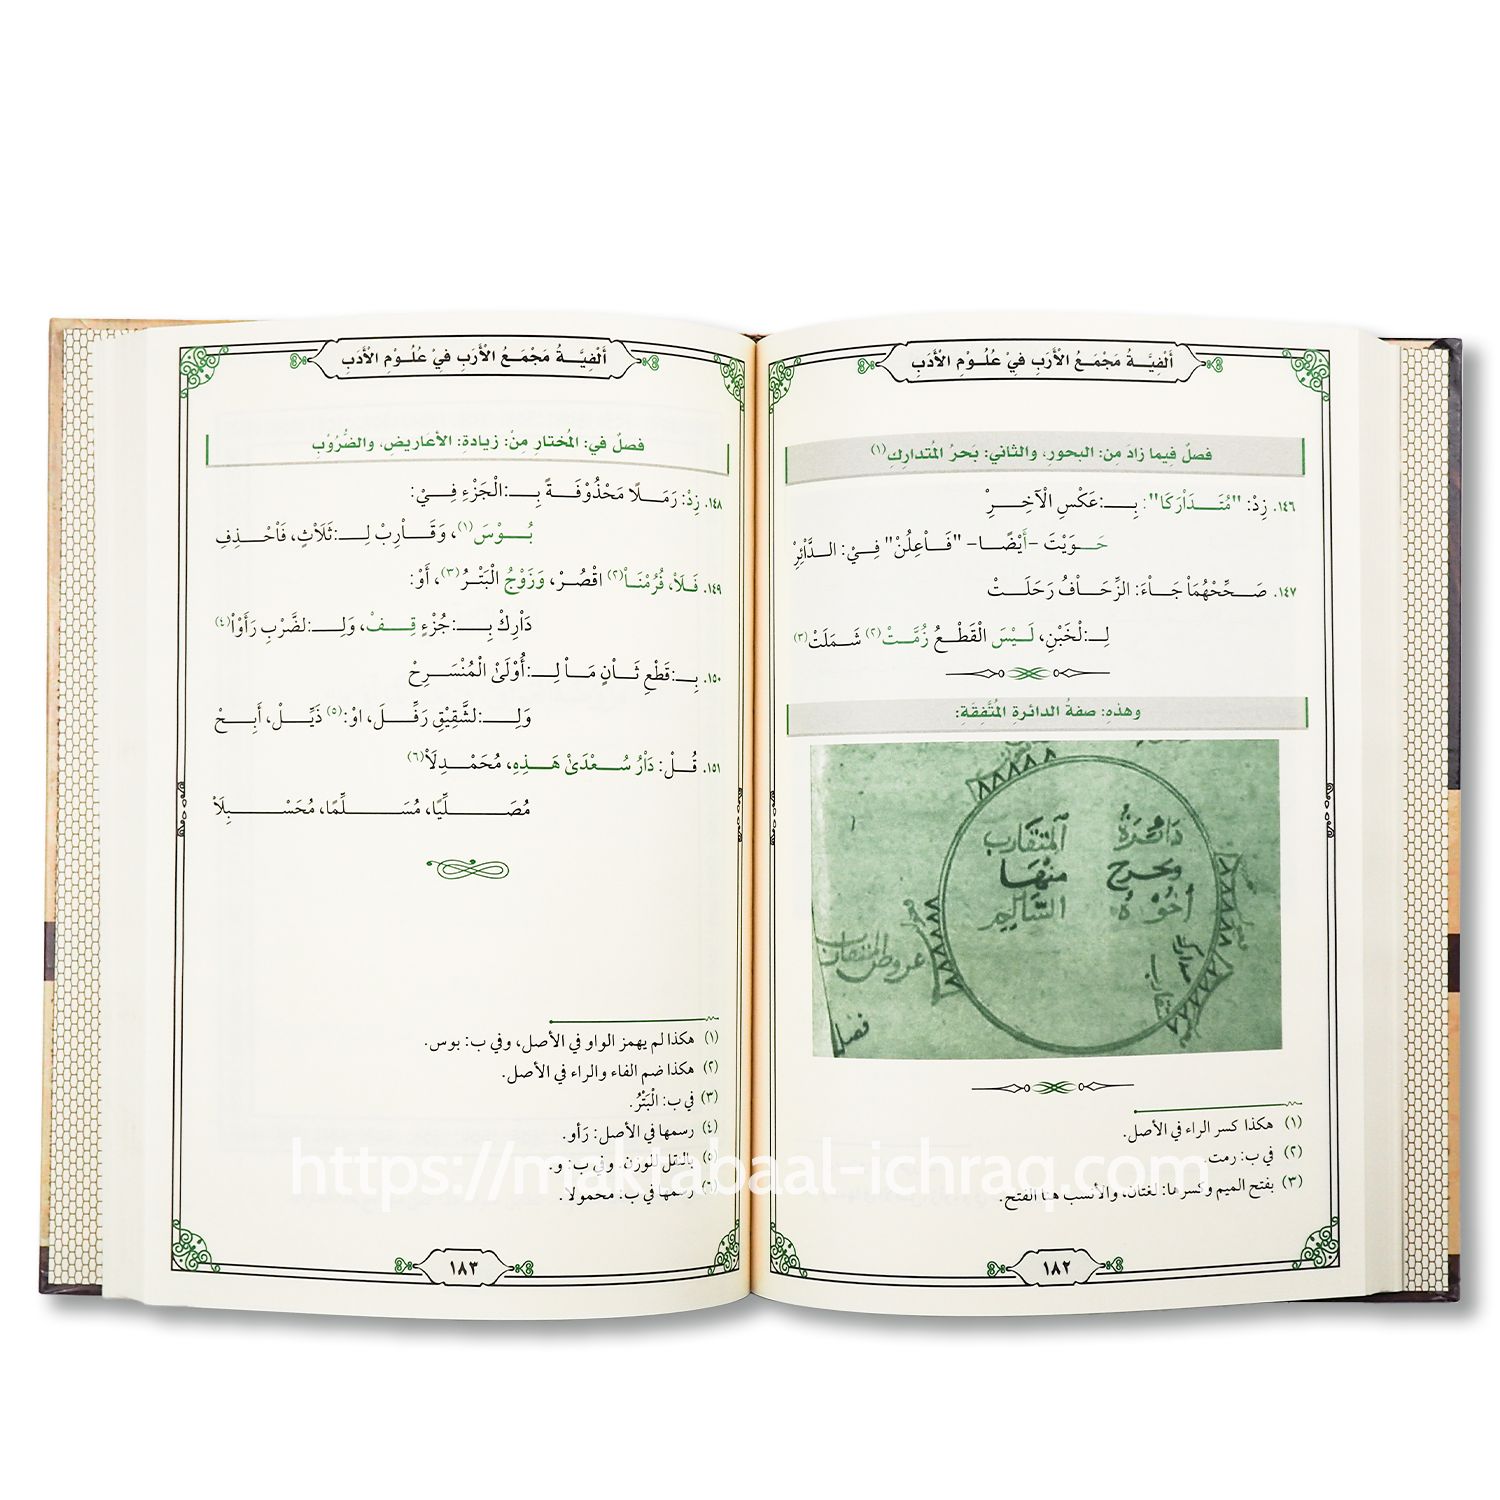 أَلْفِيَّةُ مَجْمَعُ الْأَرَبِ فِيْ عُلُوْمِ الْأَدَبِ
فصلٌ فِيما زادَ مِن: البحورِ، والثاني: بَحرُ المُتدارِكِ (١)
١٤٦. زِدْ: "مُتَدَاْرَكَا": بِـ:عَكْسِ الْآخِرِ
حَوَيْتَ -أَيْضًا- "فَاْعِلُنْ" فِيْ: الدَّاْئِرْ
١٤٧. صَحِّحْهُمَاْ جَاْءَ: الزِّحَاْفُ رَحَلَتْ
لِـ:لْخَبْنِ، لَيْسَ الْقَطْعُ زُمَّتْ (٢) شَمَلَتْ (٣)
وهذه: صفةُ الدائرةِ المُتَّفِقَة:
دائرة المتقارب
ويخرج منها
أخوه السالم
عروض المتقارب
فصل
(١) هكذا كسر الراء في الأصل.
(٢) في ب: رمت.
(٣) بفتح الميم وكسرها: لغتان، والأنسب هنا الفتح.
١٨٢
أَلْفِيَّةُ مَجْمَعُ الْأَرَبِ فِيْ عُلُوْمِ الْأَدَبِ
فصلٌ في: المُختارِ مِنْ: زيادةِ: الأعاريضِ، والضُّرُوْبِ
١٤٨. زِدْ: رَمَلًا مَحْذُوْفَةً بِـ:الْجَزْءِ فِيْ:
بُوْسَ (١)، وَقَاْرِبْ لِـ:ثَلَاْثٍ، فَاْحْذِفِ
١٤٩. فَلَاْ، فُرُمْنَاْ (٢) اقْصُرْ، وَزَوْجُ الْبَتْرُ (٣)، أَوْ:
دَاْرِكْ بِـ:جُزْءٍ قِفْ، وَلِـ:لضَّرْبِ رَأَوْا (٤)
١٥٠. بِـ:قَطْعِ ثَاْنٍ مَاْ لِـ:أُوْلَىْ الْمُنْسَرِحْ
وَلِـ:لشَّقِيْقِ رَفِّلَ، اوْ: (٥) ذَيِّلْ، أَبِحْ
١٥١. قُلْ: دَاْرُ سُعْدَىْ هَذِهِ، مُحَمْدِلَاْ (٦)
مُصَلِّيًا، مُسَلِّمًا، مُحَسْبِلَاْ
(١) هكذا لم يهمز الواو في الأصل، وفي ب: بوس.
(٢) هكذا ضم الفاء والراء في الأصل.
(٣) في ب: الْبَتْرُ.
(٤) رسمها في الأصل: رَأو.
(٥) بالنقل للوزن. وفي ب: و.
(٦) رسمها في ب: محمولا.
١٨٣
https://maktabaal-ichraq.com